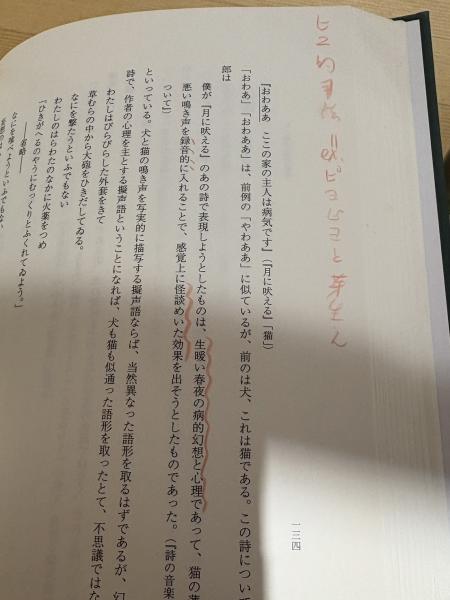 『おわああ　ここの家の主人は病気です』（『月に吠える』「猫」）
「おわあ」「おわああ」は、前例の「やわああ」に似ているが、前のは犬、これは猫である。この詩について
郎は
僕が『月に吠える』のあの詩で表現しようとしたものは、生暖い春夜の病的幻想と心理であって、猫の薄
悪い鳴き声を録音的に入れることで、感覚上に怪談めいた効果を出そうとしたものであった。（『詩の音楽
ついて』）
といっている。犬と猫の鳴き声を写実的に描写する擬声語ならば、当然異なった語形を取るはずであるが、幻
詩で、作者の心理を主とする擬声語ということになれば、犬も猫も似通った語形を取ったとて、不思議ではな
わたしはびらびらした外套をきて
草むらの中から大砲をひきだしてゐる。
なにを撃たうといふでもない
わたしのはらわたのなかに火薬をつめ
「ひきがへるのやうにむつくりとふくれてゐよう。」
――省略――
なにを喰べようといふでもない
一三四